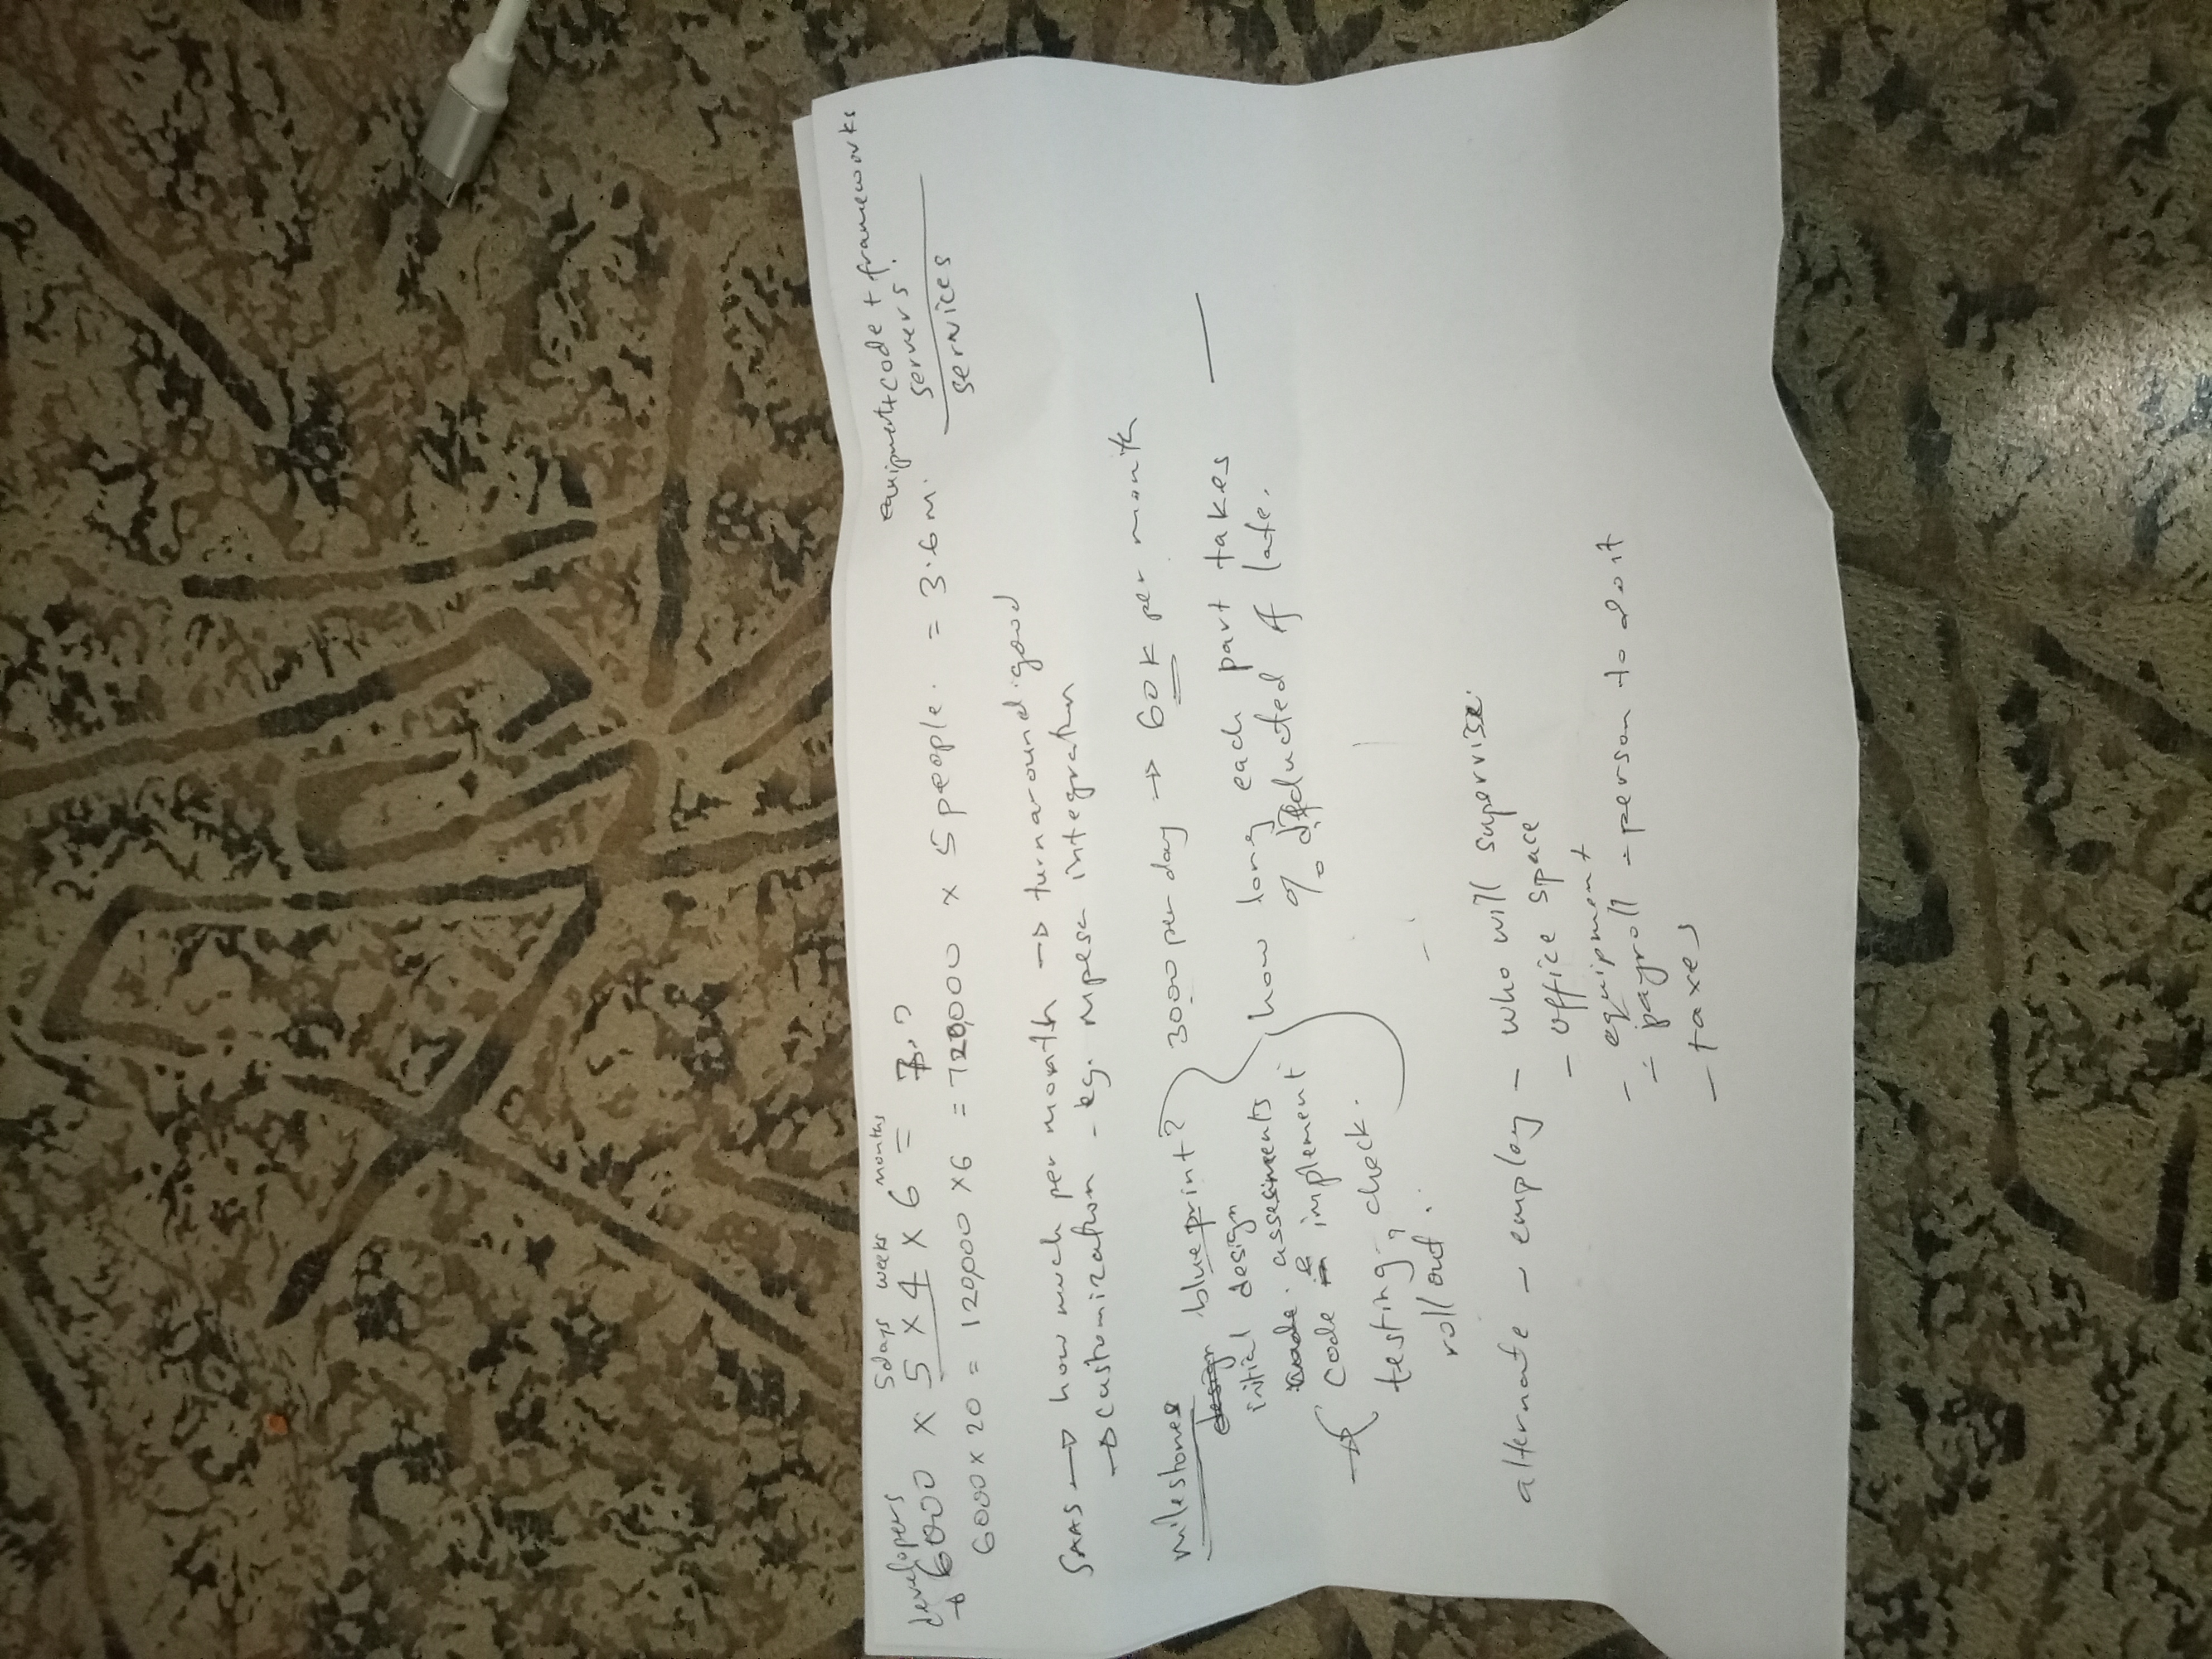 developers 5days weeks months
→ 6000 × 5 × 4 × 6 =
6000 × 20 = 120,000 × 6 = 720,000 × 5 people. = 3.6 m.
equipment + code + frameworks
servers
services
SAAS → how much per month → turnaround good
→ customization - eg. mpesa integration
milestones
design blueprint?
initial design
code assesments
code & implement
testing, check.
roll out.
3000 per day → 60k per month
how long each part takes —
% deducted if late.
alternate - employ - who will supervise.
- office space
- equipment
- payroll - person to do it
- taxes